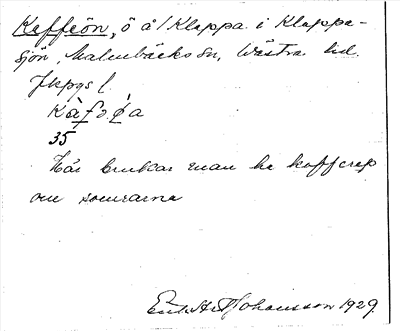 Kaffeön, ö å / Klappa i Klappa-
sjön, Malmbäcks sn, Västra hd.
Jkpgs l.
35
Här brukar man ha kaffcrep
om somrarna
Johansson 1929.